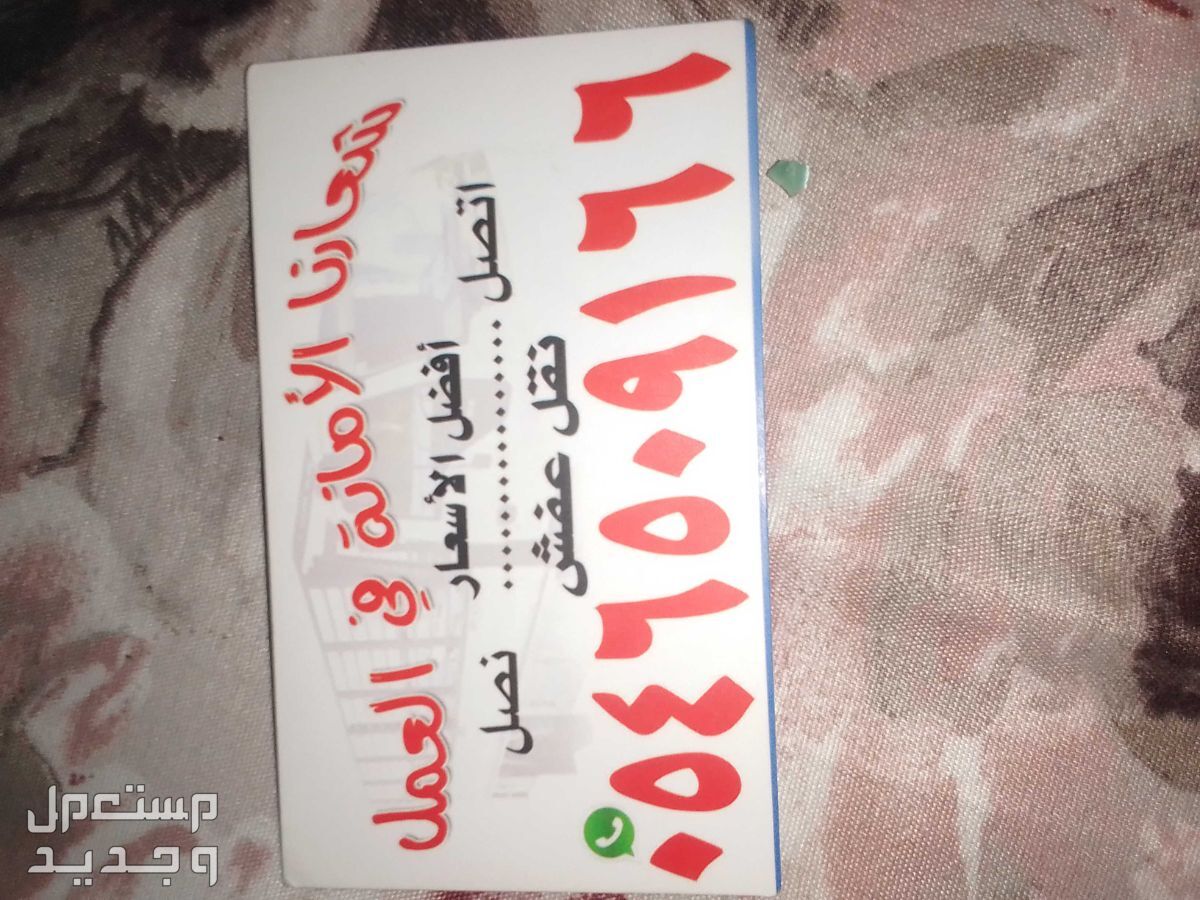 شعارنا الأمانة في العمل
أفضل الأسعار
اتصل .............. نصل
نقل عفش
٠٥٤٦٥٠٩١٦٦
مستعمل
وجديد